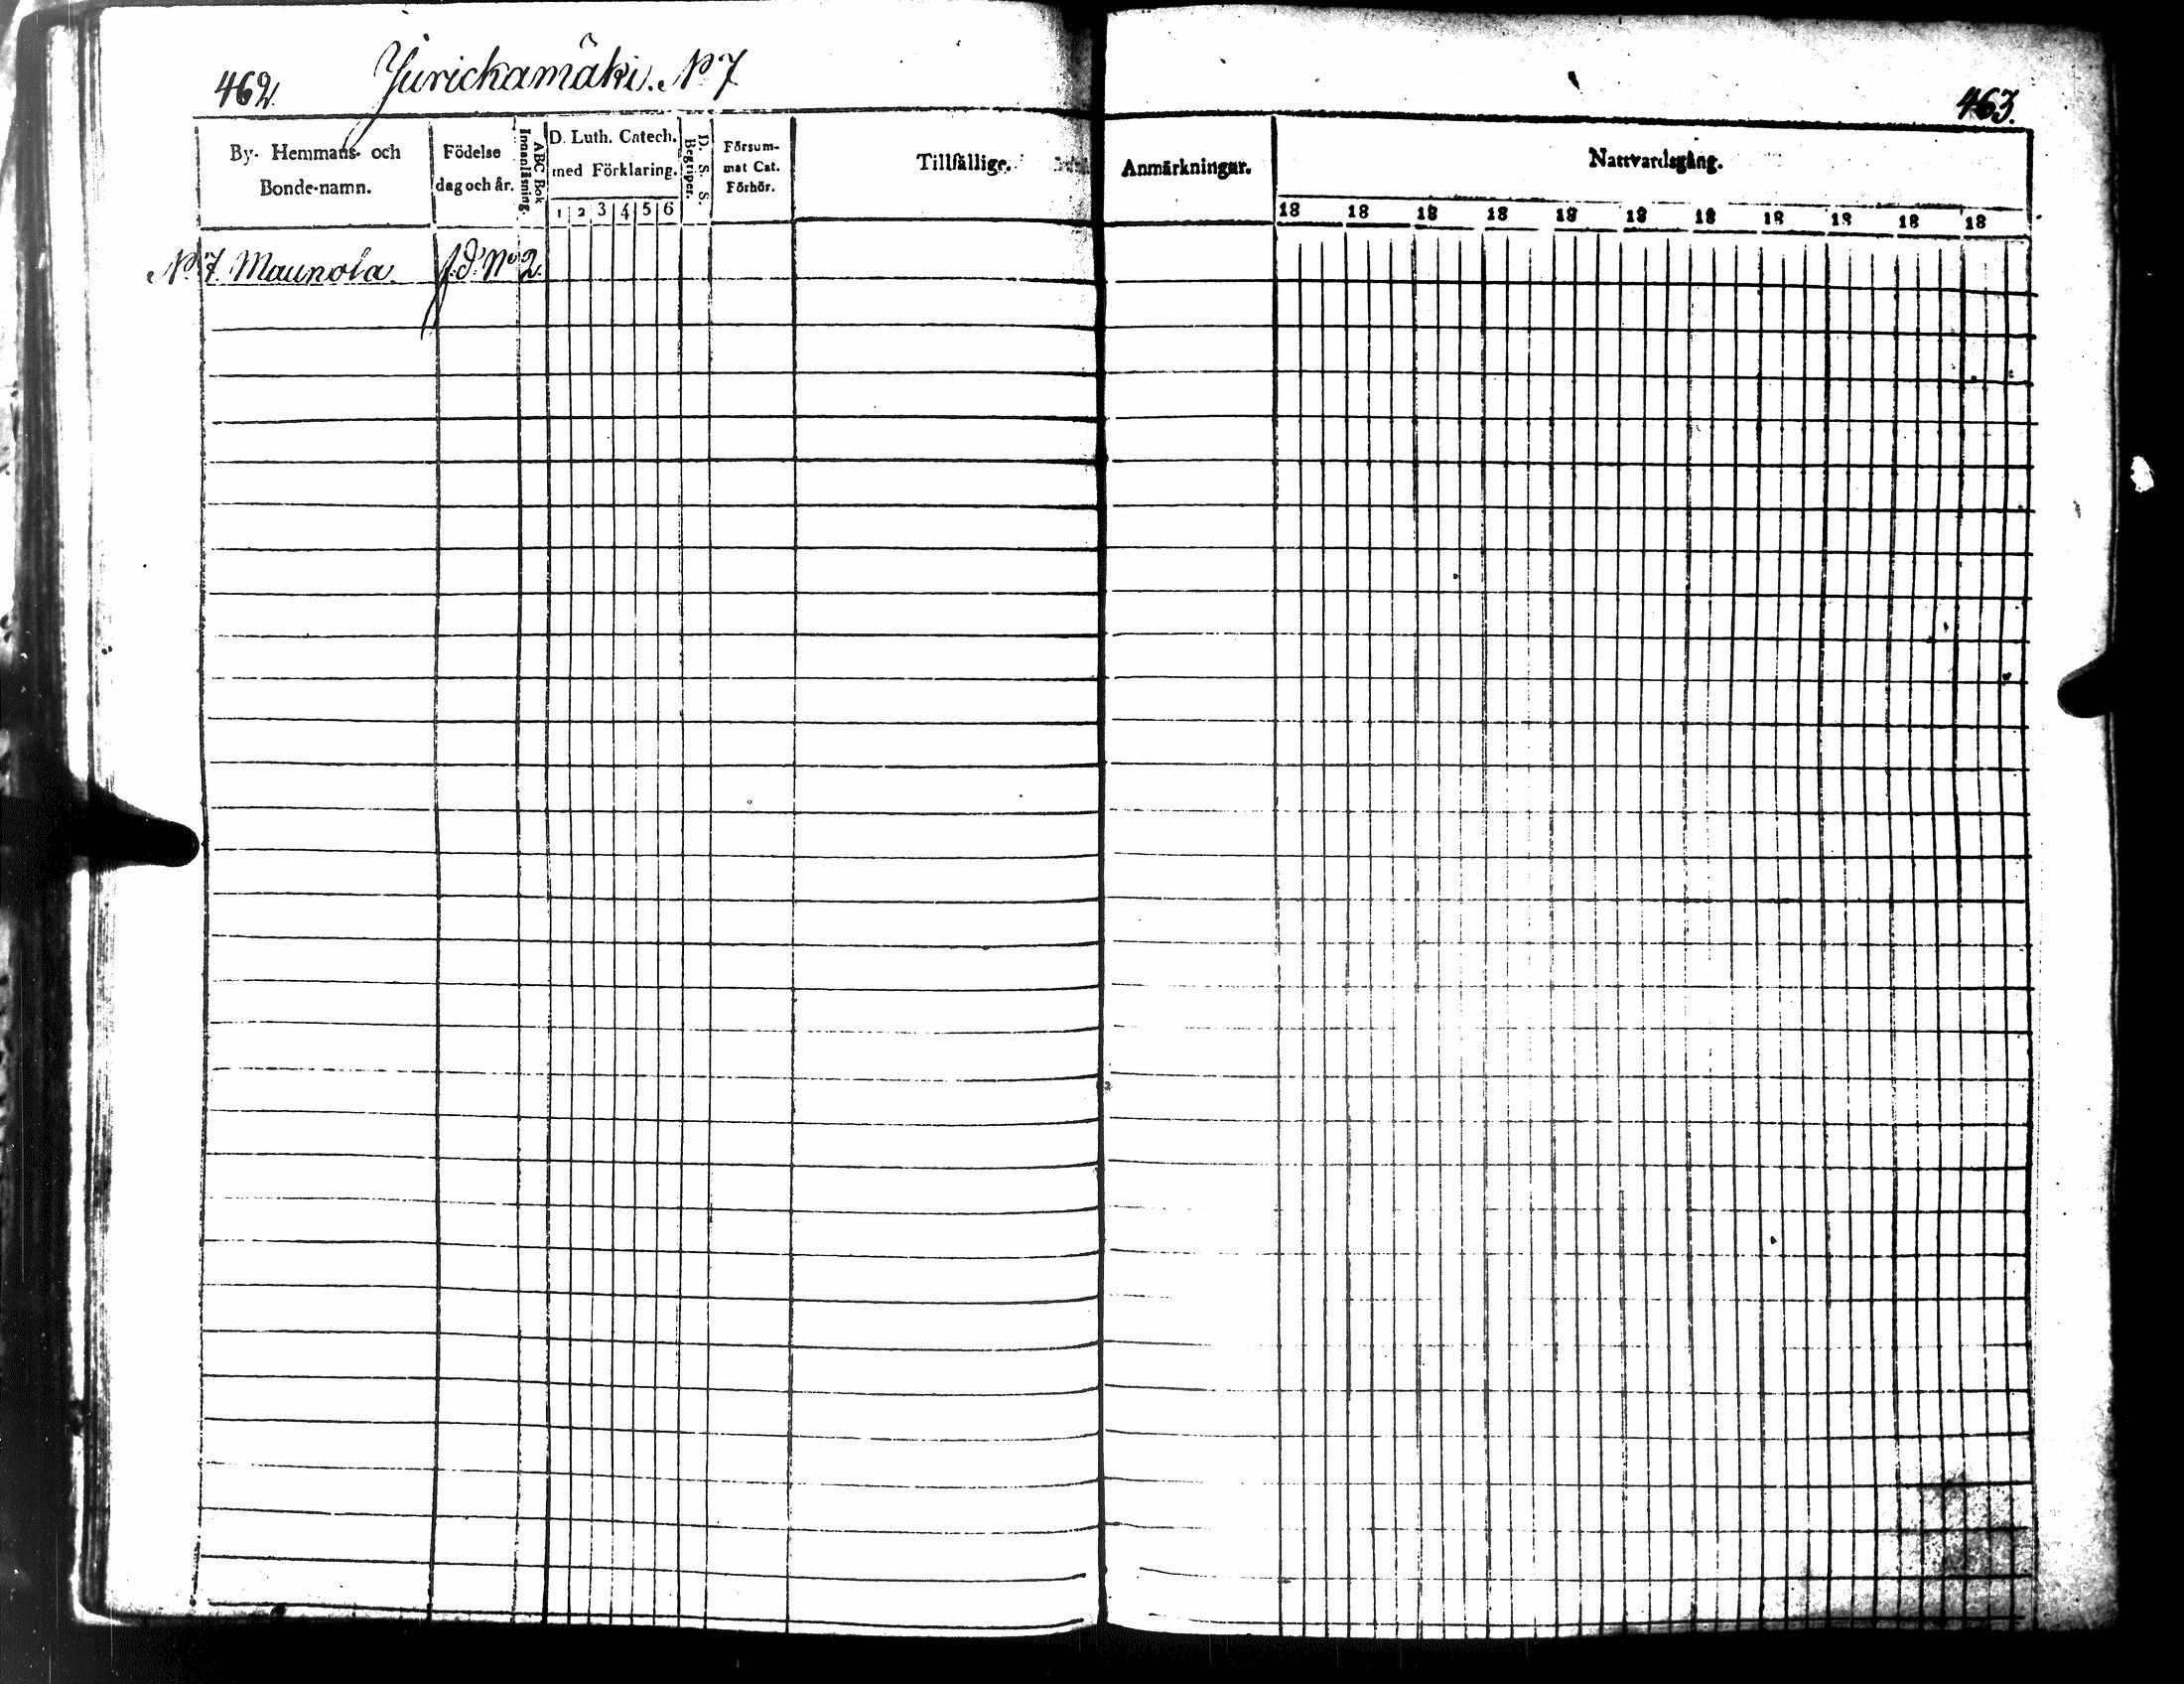 462. Jurickamäki. No 7
463.
By- Hemmans- och Bonde-namn.
Födelse dag och år.
ABC Bok Innanläsning.
D. Luth. Catech. med Förklaring.
1 2 3 4 5 6
D. S. S. Begriper.
Försum-mat Cat. Förhör.
Tillfällige
Anmärkningar.
Nattvardsgång.
18 18 18 18 18 18 18 18 18 18 18
No 7. Maunola. f.d. No 2.